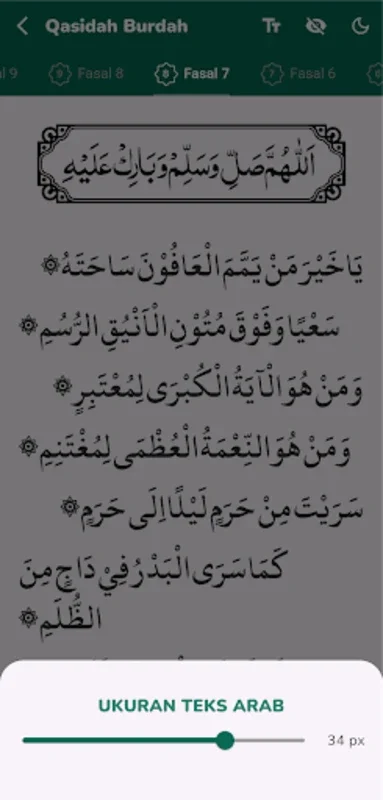 Qasidah Burdah
Tт
l 9
9 Fasal 8
8 Fasal 7
7 Fasal 6
اَللّٰهُمَّ صَلِّ وَسَلِّمْ وَبَارِكْ عَلَيْهِ
يَا خَيْرَ مَنْ يَمَّمَ الْعَافُوْنَ سَاحَتَهُ ۞
سَعْيًا وَفَوْقَ مُتُوْنِ الْاَنْيُقِ الرُّسُمِ ۞
وَمَنْ هُوَ الْآيَةُ الْكُبْرَى لِمُعْتَبِرٍ ۞
وَمَنْ هُوَ النِّعْمَةُ الْعُظْمَى لِمُغْتَنِمِ ۞
سَرَيْتَ مِنْ حَرَمٍ لَيْلًا اِلَى حَرَمٍ ۞
كَمَا سَرَى الْبَدْرُ فِيْ دَاجٍ مِنَ
الظُّلَمِ ۞
UKURAN TEKS ARAB
34 px